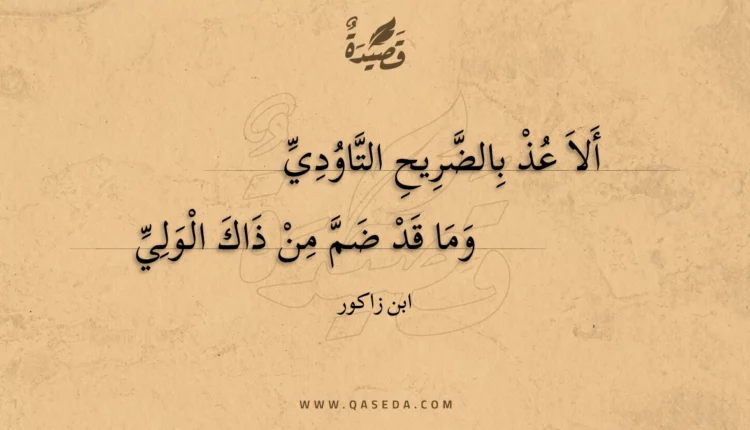 قَصِيدَةٌ
أَلاَ عُذْ بِالضَّرِيحِ التَّاوُدِيِّ
وَمَا قَدْ ضَمَّ مِنْ ذَاكَ الْوَلِيِّ
ابن زاكور
WWW.QASEDA.COM